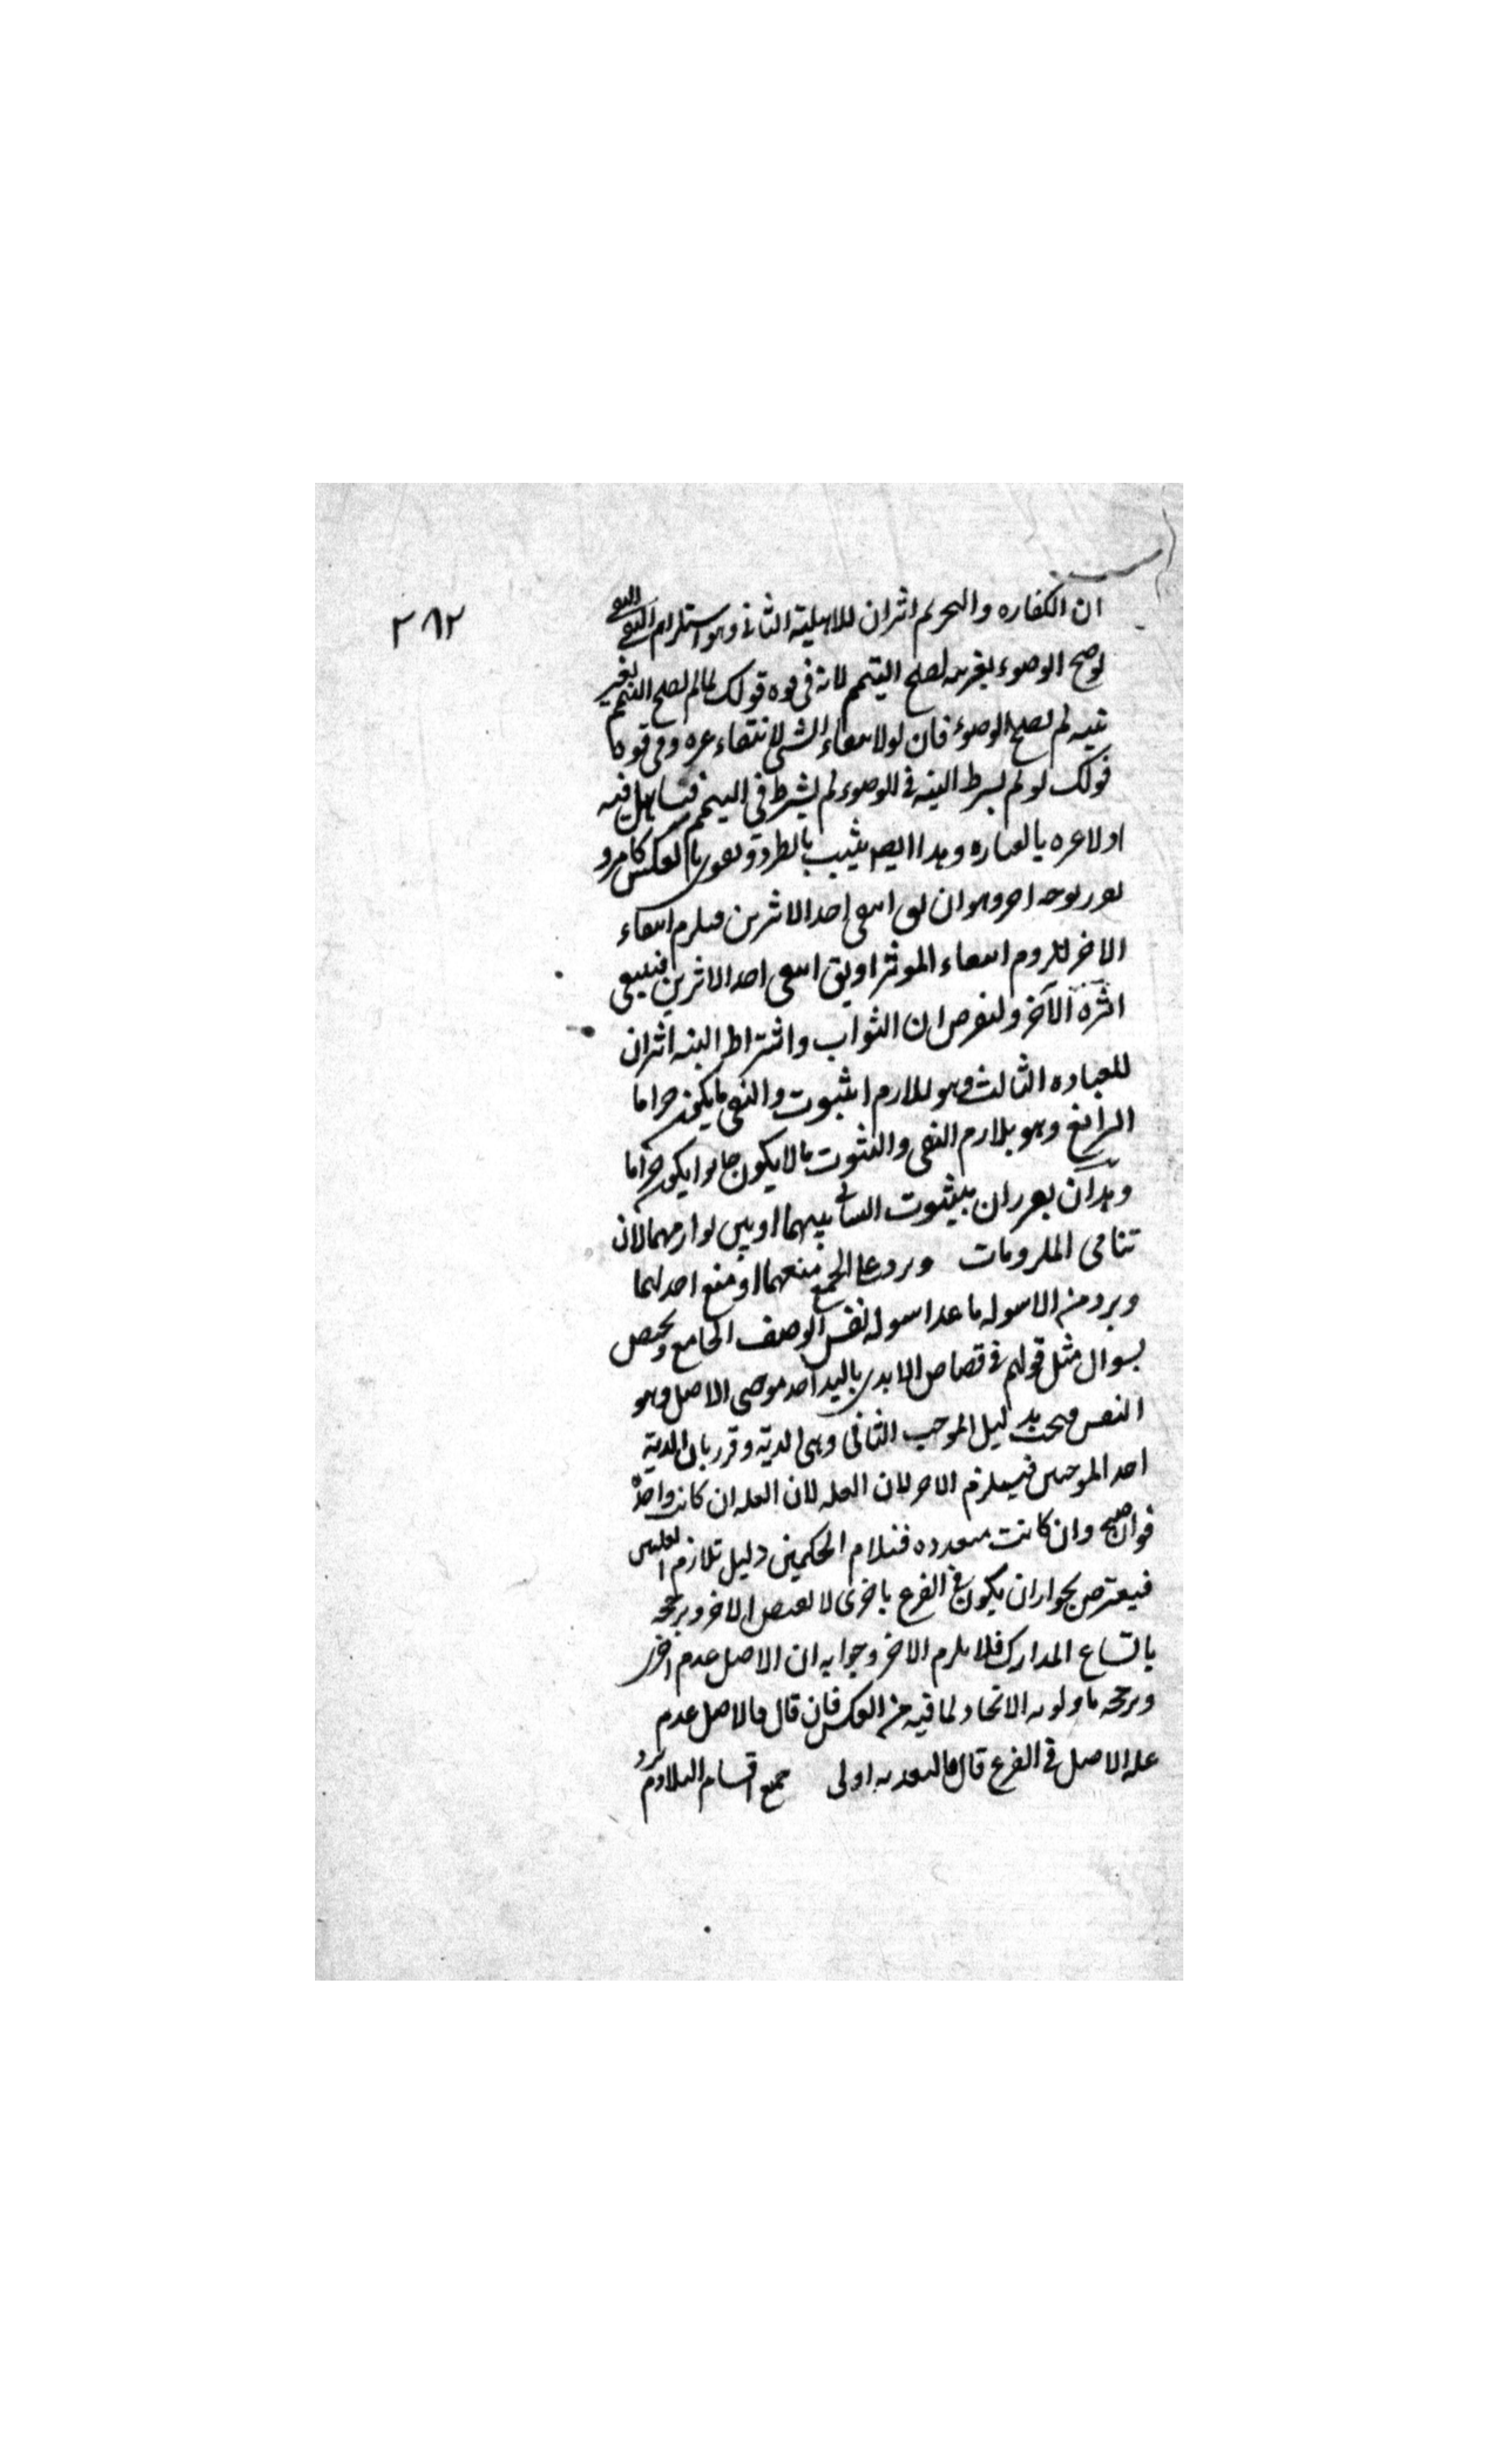 ٢٨٢
ان الكفاره والتحريم اثران للاهلية الثانى وهو استلزام النفى النفى
لو صح الوضوء بغير نيه لصح التيمم لانه فى قوه قولك لما لم يصح التيمم بغير
نيه لم يصح الوضوء فان لولا نتفاء الشى لانتفاء غيره وفى قوه
قولك لو لم يشترط النيه فى الوضوء لم يشترط فى التيمم فتساهل فيه
اولا غيره بالعباره وهذا ايضا يثبت بالطرد ويقوى بالعكس كما مر و
يقرر بوجه اخر وهو ان يق انتفى احد الاثرين فيلزم انتفاء
الاخر للزوم انتفاء الموثر او يق انتفى احد الاثرين فينتفى
اثره الآخر ولنفرض ان الثواب واشتراط النيه اثران
للعباده الثالث وهو تلازم الثبوت والنفى ما يكون حراما
الرابع وهو تلازم النفى والثبوت ما لا يكون جايزا يكون حراما
وهذان يقرران بثبوت التنافى بينهما او بين لوازمهما لان
تنافى الملزومات ويرد على الجميع منعهما او منع احدهما
ويرد من الاسوله ما عدا اسوله نفس الوصف الجامع ويختص
بسوال مثل قولهم فى قصاص الايدى باليد احد موجبى الاصل وهو
النفس فيجب بدليل الموجب الثانى وهى الدية وقرر بان الدية
احد الموجبين فيستلزم الاخر لان العله لان العله ان كانت واحدة
فواضح وان كانت متعدده فتلازم الحكمين دليل تلازم العلتين
فيعترض بجواز ان يكون فى الفرع باخرى لا تقتضى الاخر ويرجحه
باتساع المدارك فلا يلزم الاخر وجوابه ان الاصل عدم اخرى
ويرجحه باولويه الاتحاد لما فيه من العكس فان قال فالاصل عدم
عله الاصل فى الفرع قال فالتعديه اولى جميع اقسام التلازم يرد